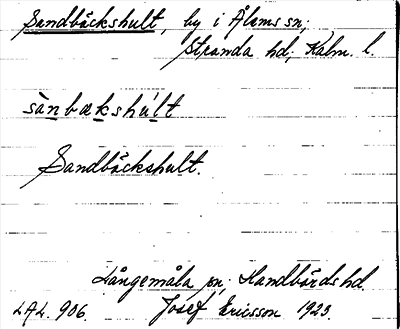 Sandbäckshult, by i Ålems sn;
Stranda hd, Kalm. l.
sànbækshúlt
Sandbäckshult.
Långemåla sn; Handbörds hd.
LAL. 906. Josef Ericsson 1923.